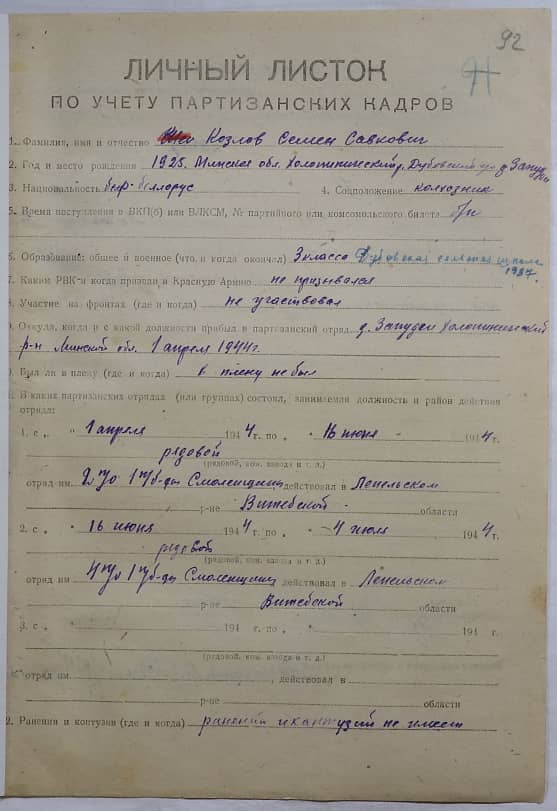 92
ЛИЧНЫЙ ЛИСТОК
ПО УЧЕТУ ПАРТИЗАНСКИХ КАДРОВ
1. Фамилия, имя и отчество Козлов Семен Савкович
2. Год и место рождения 1925. Минская обл. Холопиничский р. Дубовский д.
3. Национальность белорус 4. Соцположение колхозник
5. Время поступления в ВКП(б) или ВЛКСМ, № партийного или комсомольского билета б/п
6. Образование: общее и военное (что и когда окончил) 3 класса Дубовская школа
1937.
7. Каким РВК и когда призван в Красную Армию не призывался
8. Участие на фронтах (где и когда) не участвовал
9. Откуда, когда и с какой должности прибыл в партизанский отряд д. Холопиничский
р-н Минской обл. 1 апреля 1944г.
Был ли в плену (где и когда) в плену не был
В каких партизанских отрядах (или группах) состоял, занимаемая должность и район действия
отряда:
1. с „ 1 апреля 1944 г. по „ 16 июня 1944 г.
рядовой
(рядовой, ком. взвода и т. д.)
отряд им. 2 1 Смоленщины действовал в Лепельском
р-не Витебской области
2. с „ 16 июня 1944 г. по „ 4 июля 1944 г.
рядовой
(рядовой, ком. взвода и т. д.)
отряд им. 4 1 Смоленщины действовал в Лепельском
р-не Витебской области
3. с „ 194 г. по „ 194 г.
(рядовой, ком. взвода и т. д.)
отряд им. , действовал в
р-не области
2. Ранения и контузии (где и когда) ранений и кантузий не имеет